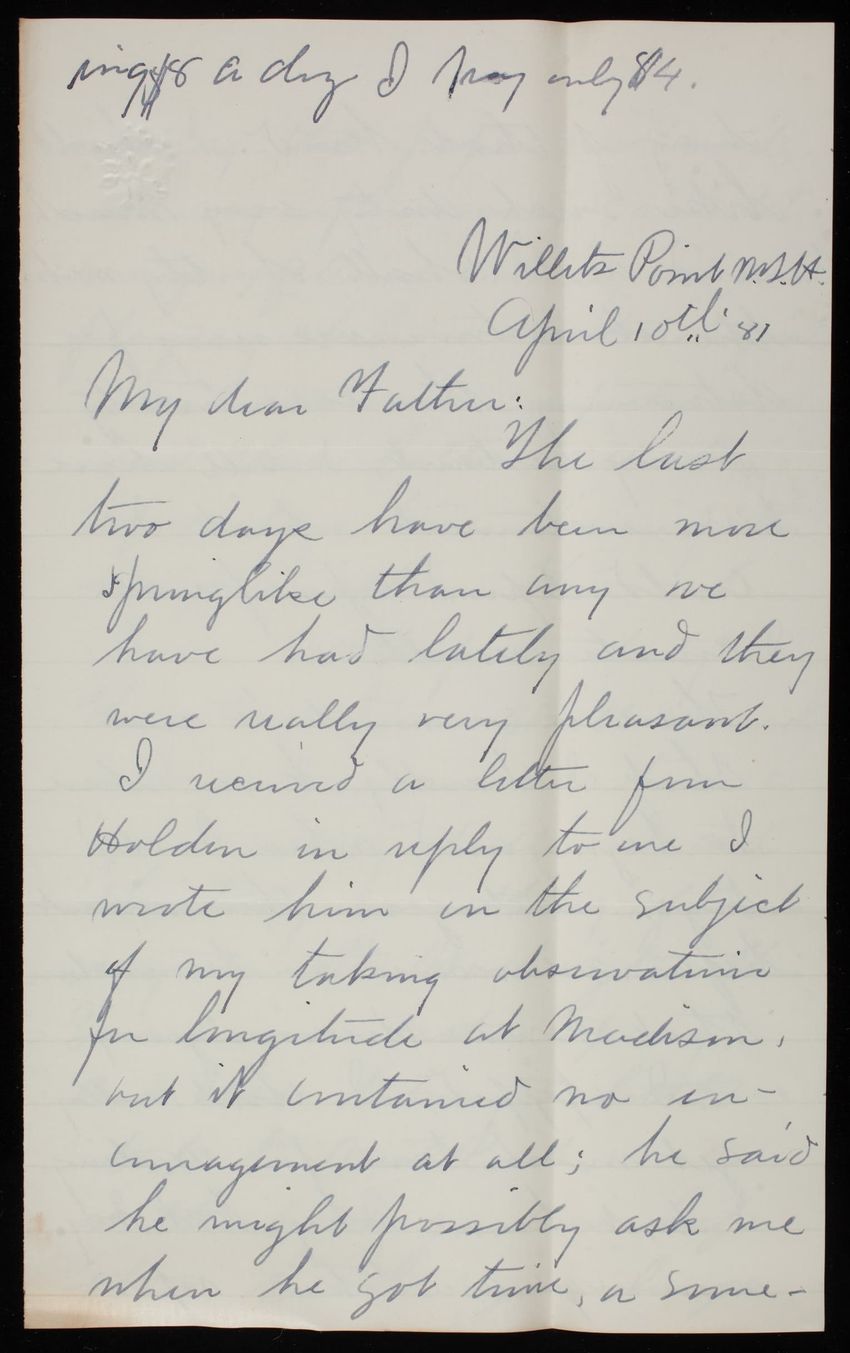 ing $8 a doz I pay only $4.
Willets Point N.Y.H.
April 10th 81
My dear Father:
The last
two days have been more
springlike than any we
have had lately and they
were really very pleasant.
I received a letter from
Holden in reply to one I
wrote him on the subject
of my taking observations
for longitude at Madison,
but it contained no en-
couragement at all; he said
he might possibly ask me
when he got time, a some-